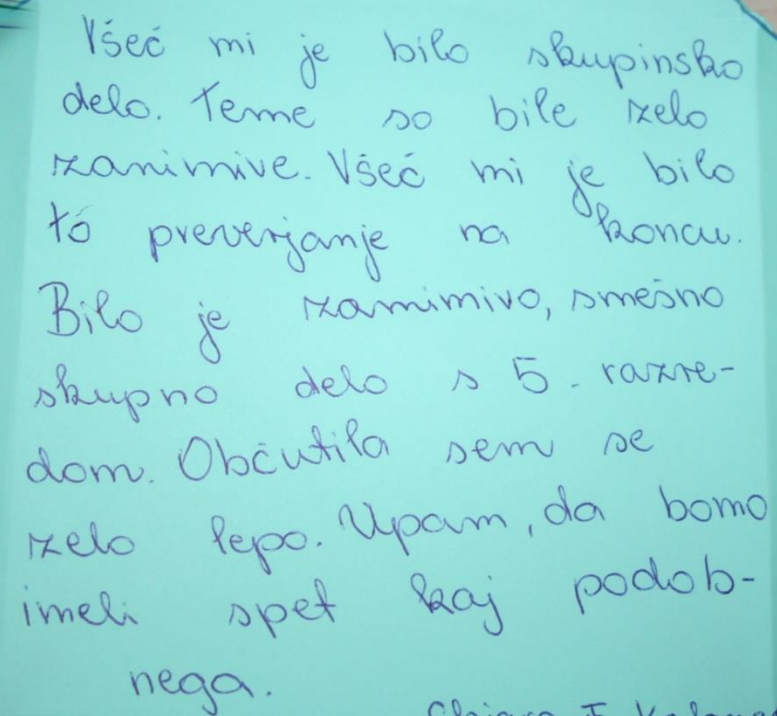 Všeč mi je bilo skupinsko
delo. Teme so bile zelo
zanimive. Všeč mi je bilo
to preverjanje na koncu.
Bilo je zanimivo, smešno
skupno delo s 5. razre-
dom. Občutila sem se
zelo lepo. Upam, da bomo
imeli spet kaj podob-
nega.